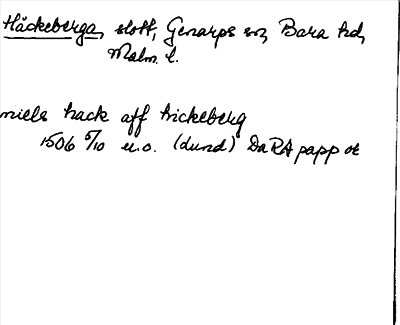 Häckeberga, slott, Genarps sn, Bara hd,
Malm. l.
niels hack aff hickeberg
1506 5/10 u.o. (Lund) DaRA papp or